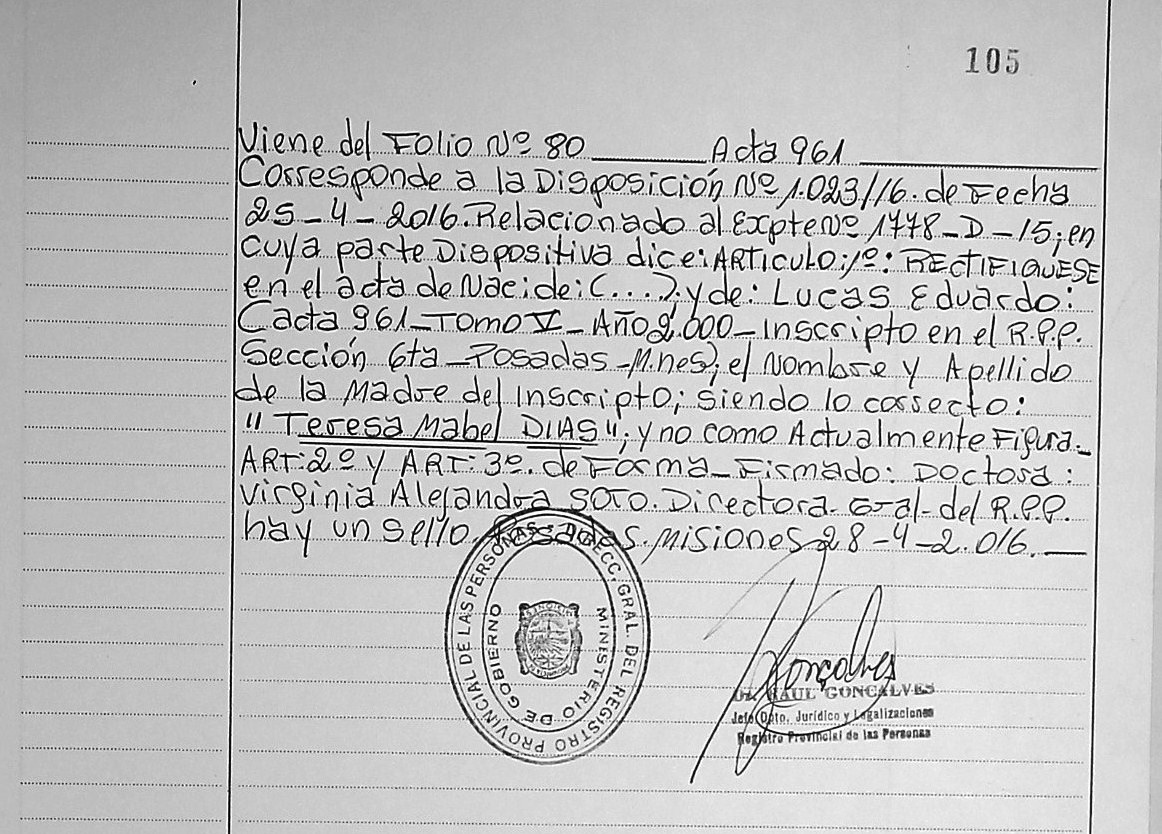 105
Viene del Folio Nº 80 ______ Acta 961 ______
Corresponde a la Disposición Nº 1.023/16. de Fecha
25-4-2016. Relacionado al Expte Nº 1778-D-15; en
cuya parte Dispositiva dice: ARTICULO: 1º: RECTIFIQUESE
en el acta de Nac; de: (....); y de: Lucas Eduardo:
Cacta 961-Tomo V-Año 2.000-Inscripto en el R.P.P.
Sección 6ta-Posadas-Mnes); el Nombre y Apellido
de la Madre del Inscripto; siendo lo correcto:
"Teresa Mabel DIAS"; y no como Actualmente Figura.-
ART: 2º y ART: 3º. de Forma-Firmado: Doctora:
Virginia Alejandra SOTO. Directora-Gral-del R.P.P.
hay un sello. Posadas. Misiones 28-4-2.016.__
DIRECC. GRAL. DEL REGISTRO PROVINCIAL DE LAS PERSONAS
MINISTERIO DE GOBIERNO
Gonçalves
Dr. RAUL GONCALVES
Jefe Dpto. Jurídico y Legalizaciones
Registro Provincial de las Personas